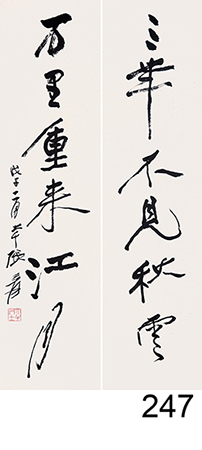 三年不見秋雲
万里重来江月
戊子二月大千張爰
247